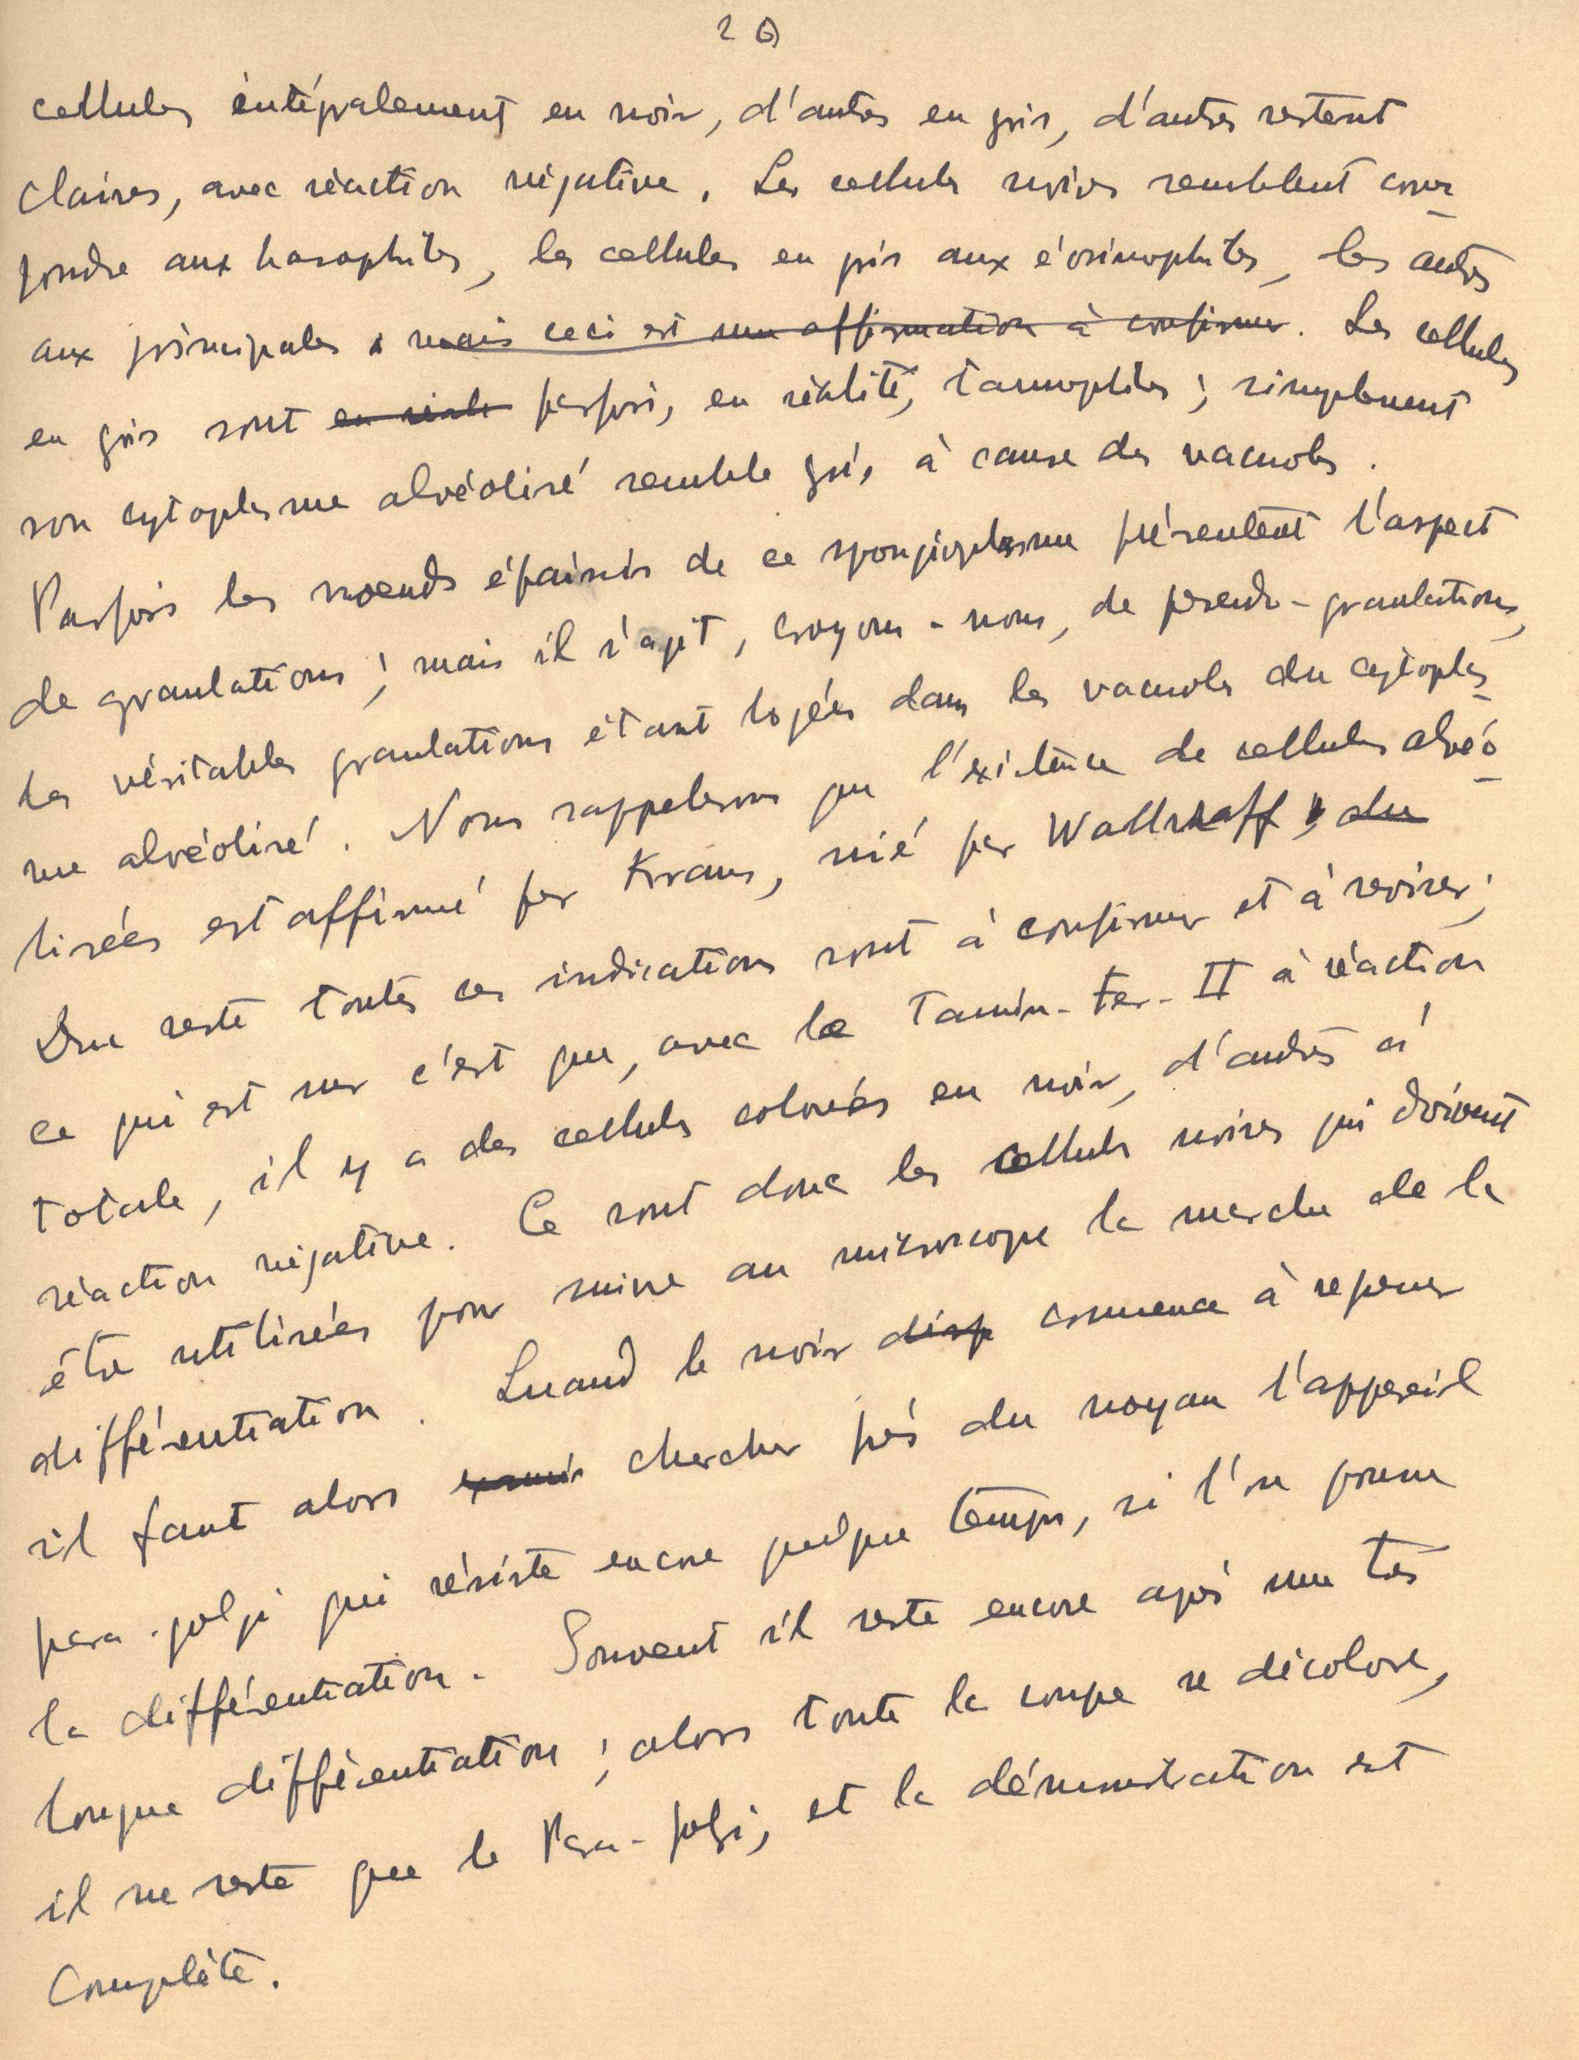 20
cellules intégralement en noir, d'autres en gris, d'autres restent
claires, avec réaction négative. Les cellules noires semblent corres
pondre aux basophiles, les cellules en gris aux éosinophiles, les autres
aux principales. mais ceci est une affirmation à confirmer. Les cellules
en gris sont en réali parfois, en réalité, tannophiles; simplement
son cytoplasme alvéolisé semble gris à cause des vacuoles.
Parfois les noeuds épaissis de ce spongioplasme présentent l'aspect
de granulations; mais il s'agit, croyons-nous, de pseudo-granulations,
les véritables granulations étant logées dans les vacuoles du cytoplas
me alvéolisé. Nous rappelerons que l'existence de cellules alvéo
lisées est affirmé par Kraus, nié par Wallraff, du
Du reste toutes ces indications sont à confirmer et à reviser;
ce qui est sur c'est que, avec le Tannin-Fer-II à réaction
totale, il y a des cellules colorées en noir, d'autres à
réaction négative. Ce sont donc les cellules noires qui doivent
étre utilisées pour suivre au microscope la marche de la
différentiation. Quand le noir disp commence à
il faut alors chercher près du noyau l'appareil
para-golgi qui résiste encore quelque temps, si l'on
la différentiation. Souvent il reste encore après une très
longue différentiation; alors toute la coupe se décolore,
il ne reste que le Para-golgi, et la démonstration est
complète.